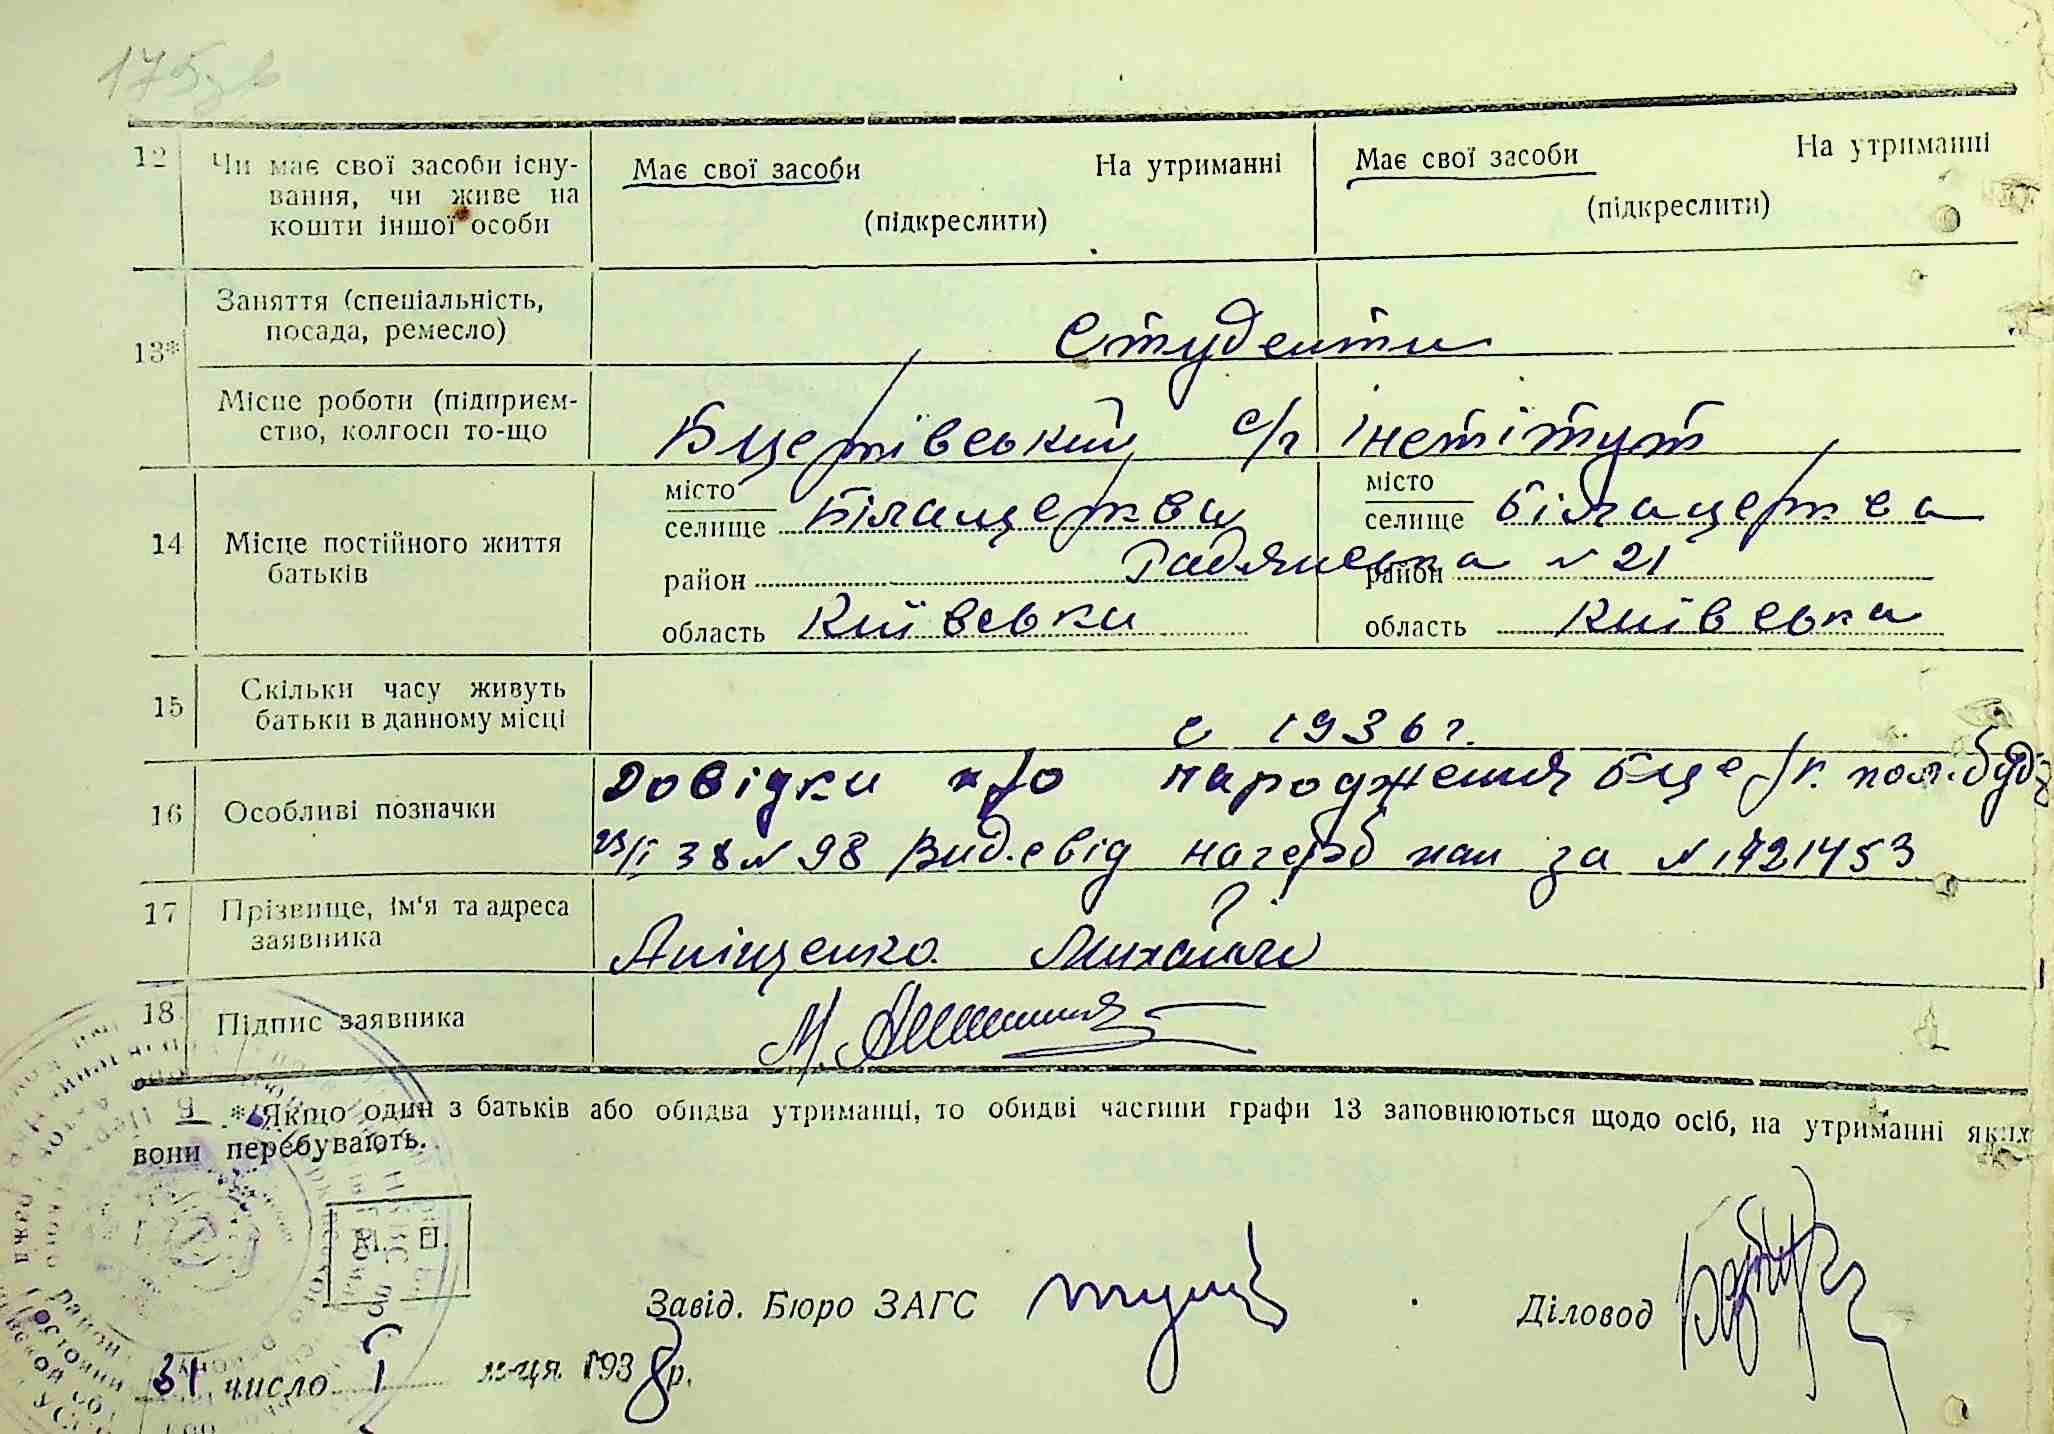 175зв
12 Чи має свої засоби існу-
вання, чи живе на
кошти іншої особи
Має свої засоби На утриманні
(підкреслити)
Має свої засоби На утриманні
(підкреслити)
13*
Заняття (спеціальність,
посада, ремесло)
Студенти
Місце роботи (підприєм-
ство, колгосп то-що
Бцерківський с/г інстітут
14 Місце постійного життя
батьків
місто
селище Білацерква
район
область Київська
місто
селище Білацерква
Радянська N 21
район
область Київська
15 Скільки часу живуть
батьки в данному місці
с 1936 г.
16 Особливі позначки
Довідки про народження Бцерк. пол.буд.
N 98 Вид.свід на герб пап за N 1721453
17 Прізвище, ім'я та адреса
заявника
Аніщенко Михайло
18 Підпис заявника
М.
* Якщо один з батьків або обидва утриманці, то обидві частини графи 13 заповнюються щодо осіб, на утриманні яких
вони перебувають.
М. П.
Завід. Бюро ЗАГС
Діловод
31 число I м-ця 1938 р.